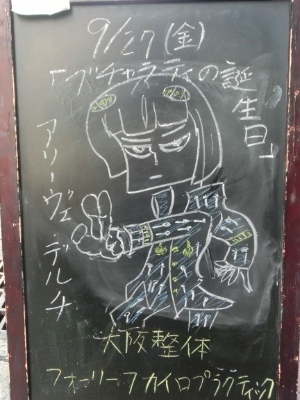 9/27(金)
「ブチャラティの誕生日」
アリーヴェデルチ
大阪整体
フォーリーフカイロプラクティック